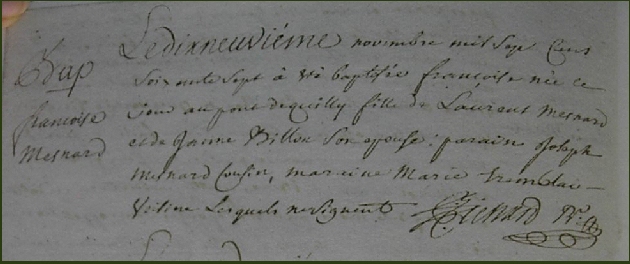 Bap
françoise
Mesnard
Le dixneuviéme novembre mil sep Cens
Soixente Sept à eté baptisée françoise née ce
jour au pont de quilly fille de Laurent Mesnard
et de Janne Billex Son epouse : parain Joseph
Mesnard Cousin, maraine Marie
Voisine Lesquels ne Signent